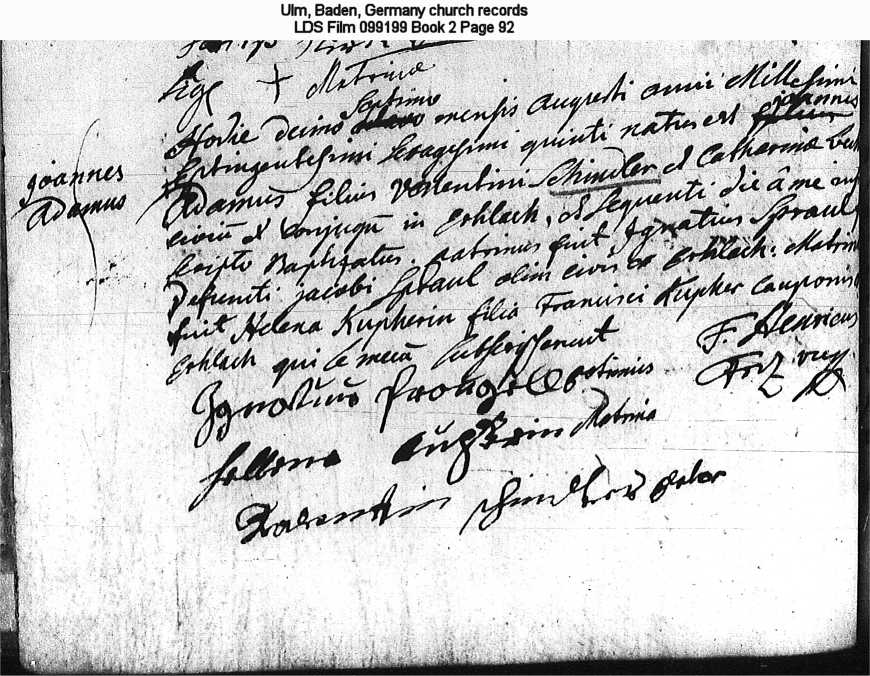 Ulm, Baden, Germany church records
LDS Film 099199 Book 2 Page 92
sig + Matrina
Hodie decimo Septimo mensis Augusti anni Millesimi
Septingentesimi Sexagesimi quinti natus est joannes
joannes
Adamus
Adamus filius Valentini Schindler et Catharina
civiu et Conjugu in Erhlach, et Sequenti die â me
Scripto Baptizatus. patrinus fuit Ignatius Spraul
Defuncti jacobi Spraul olim civis ex Erhlach. Matrina
fuit Helena Kupherin filia Francisci Kupher Cauponis
Erhlach qui se mecu Subscripserunt
F. Henricus
Ignatius patrinus
Fritz
Hellena Matrina
Valentin schindler